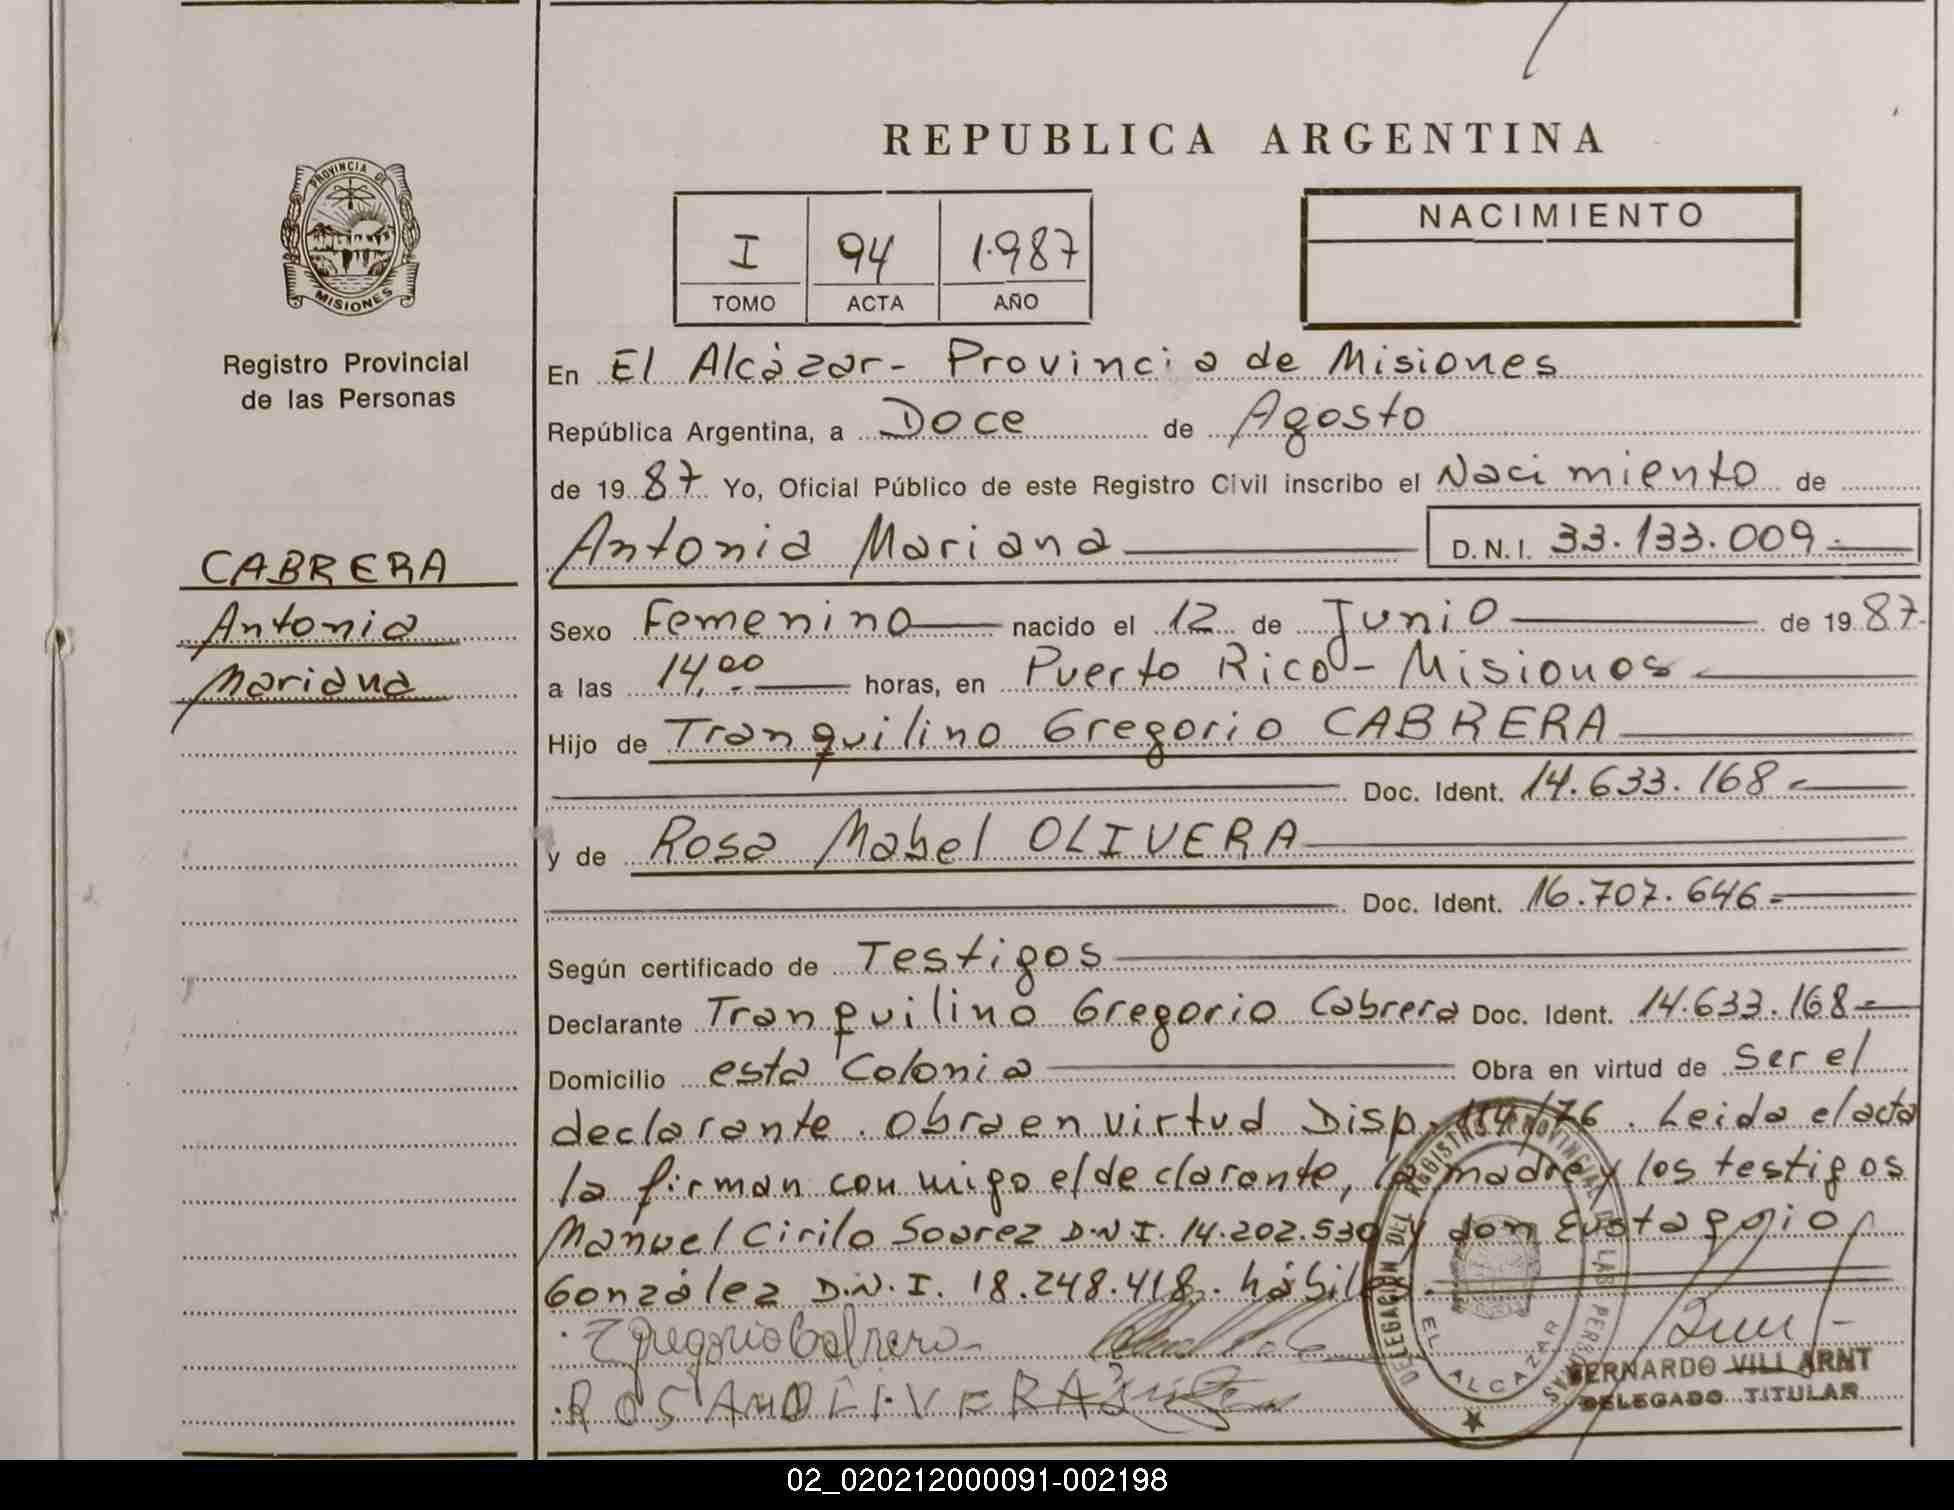 REPUBLICA ARGENTINA
PROVINCIA DE
MISIONES
Registro Provincial
de las Personas
I 94 1.987
TOMO ACTA AÑO
NACIMIENTO
CABRERA
Antonia
Mariana
En El Alcázar - Provincia de Misiones
República Argentina, a Doce de Agosto
de 1987 Yo, Oficial Público de este Registro Civil inscribo el Nacimiento de
Antonia Mariana D.N.I. 33.133.009.-
Sexo Femenino nacido el 12 de Junio de 1987.
a las 14,00.- horas, en Puerto Rico - Misiones
Hijo de Tranquilino Gregorio CABRERA
Doc. Ident. 14.633.168-
y de Rosa Mabel OLIVERA
Doc. Ident. 16.707.646-
Según certificado de Testigos
Declarante Tranquilino Gregorio Cabrera Doc. Ident. 14.633.168-
Domicilio esta Colonia Obra en virtud de Ser el
declarante. Obra en virtud Disp. 114/76. Leida el acta
la firman con migo el declarante, la madre y los testigos
Manuel Cirilo Soarez D.N.I. 14.202.530 y don Eustaquio
González D.N.I. 18.248.418. hábiles.
T gregorio Cabrera
ROSA M OLIVERA
DELEGACION DEL REGISTRO PROVINCIAL DE LAS PERSONAS
EL ALCAZAR
BERNARDO VILLARNT
DELEGADO TITULAR
02_020212000091-002198